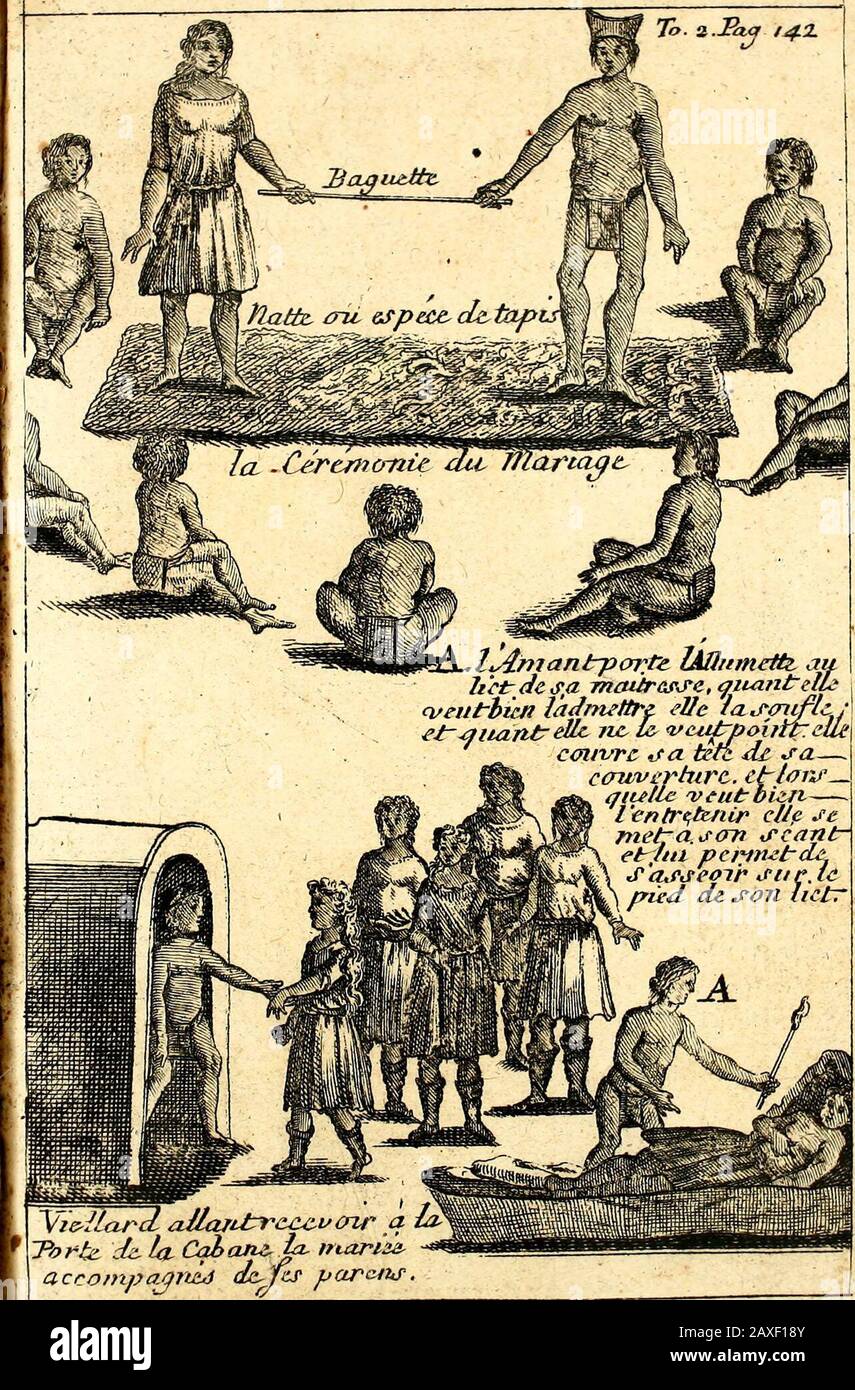 To. 2. Pag 142
Baguette
Natte ou espéce de tapis
la Cérémonie du Mariage
A. l'Amant porte l'Allumette au
lict de sa maitresse, quant elle
veut bien ladmettre elle la soufle;
et quant elle ne le veut point elle
couvre sa tête de sa
couverture. et lors
quelle veut bien
l'entretenir elle se
met a son seant
et lui permet de
s'asseoir sur le
pied de son lict.
A
Viellard allant recevoir à la
Porte de la Cabane la mariée
accompagnés de ses parens.
alamy
Image ID: 2AXF18Y
www.alamy.com